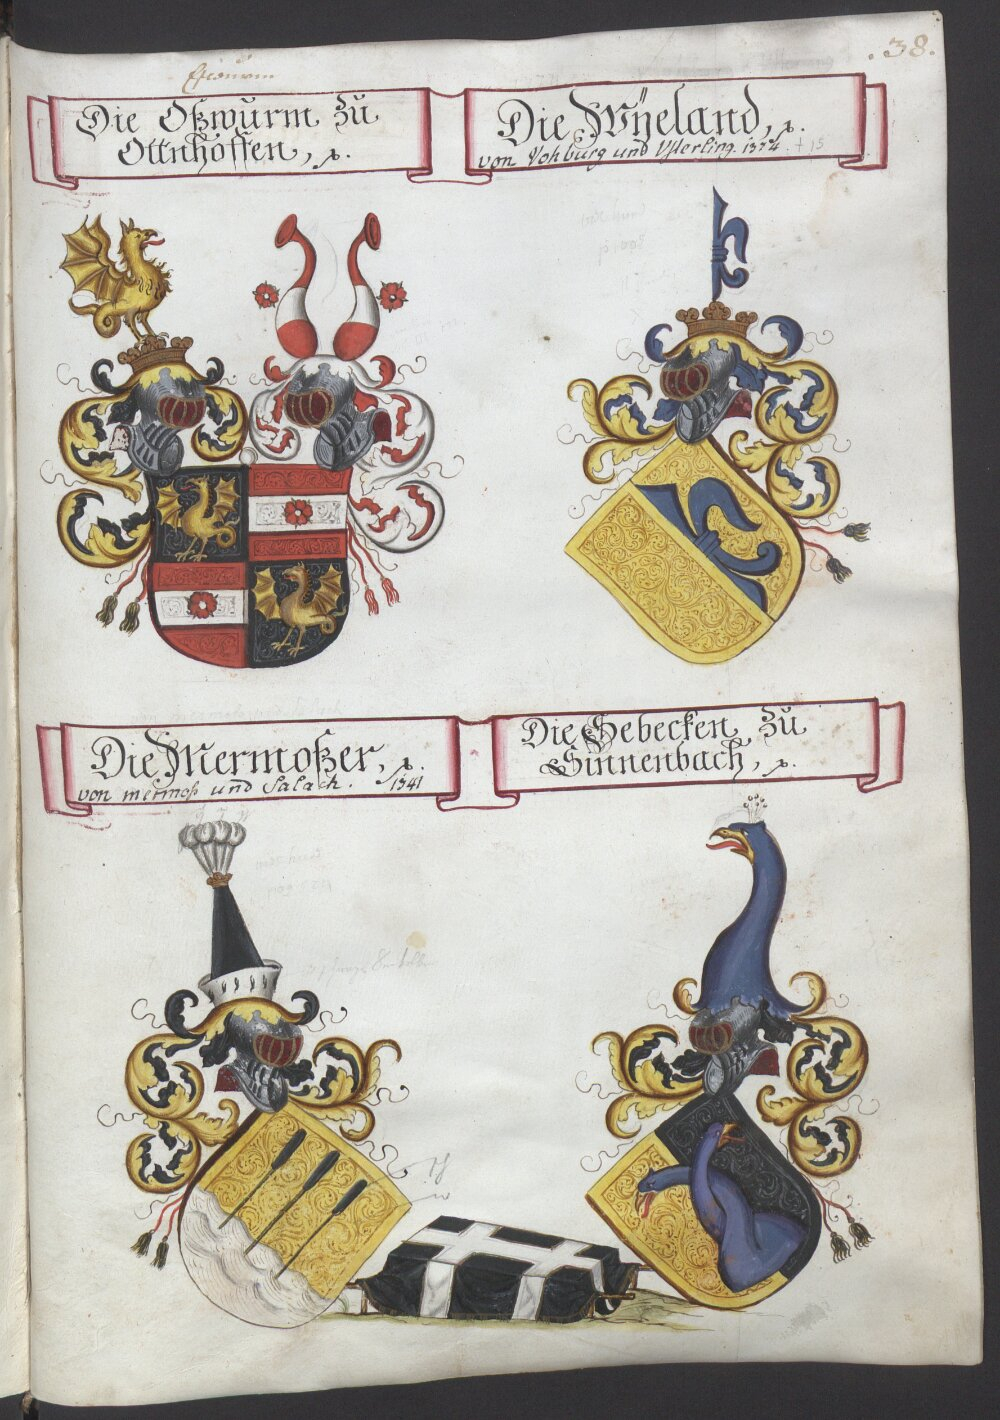 .38.
Die Oßwurm zu
Ottnhoffen, ꝛ.
Die Wÿeland, ꝛ.
von Vohburg und Vsterling. 1374. † 15
Die Mermoßer, ꝛ.
von mermoß und Salach. 1341
Die Sebecken zu
Sinnenbach, ꝛ.